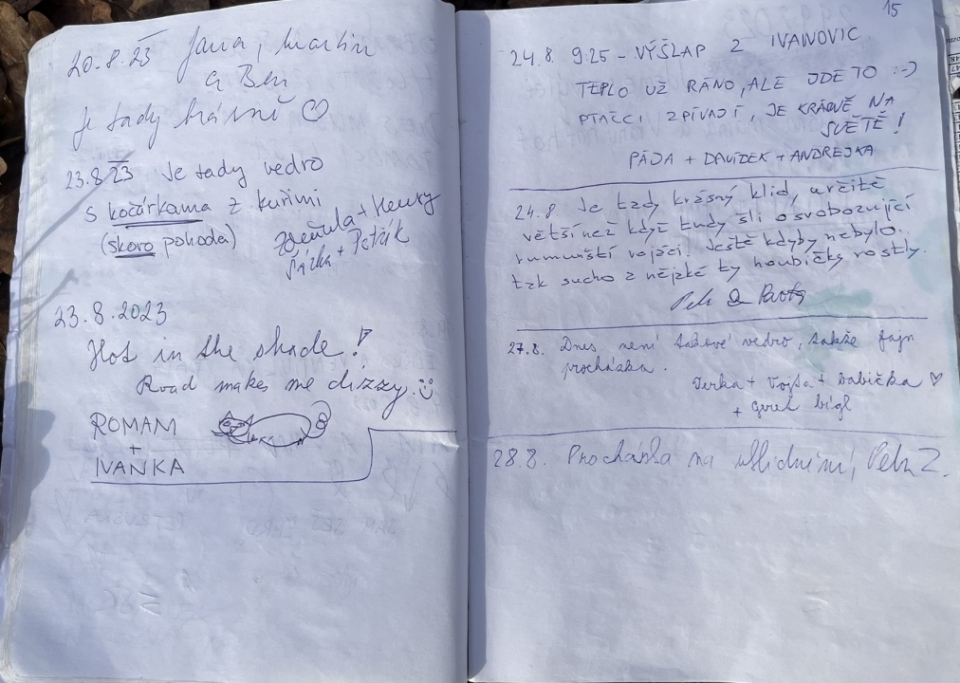 20.8.23 Jana, Martin
a Ben
Je tady krásně ♡
23.8.23 Je tady vedro
s kočárkama z Kuřimi
(skoro pohoda)
Zdeňula + Henry
Šárka + Petřík
23.8.2023
Hot in the shade!
Road makes me dizzy.
ROMAM
+
IVAŇKA
15
24.8. 9.25 - VÝŠLAP Z IVANOVIC
TEPLO UŽ RÁNO, ALE JDE TO :-)
PTÁČCI ZPÍVAJÍ, JE KRÁSNĚ NA
SVĚTĚ!
PÁJA + DAVÍDEK + ANDREJKA
24.8. Je tady krásný klid, určitě
větší než když tudy šli osvobozující
rumunští vojáci. Ještě kdyby nebylo
tak sucho a nějaké ty houbičky rostly.
Petr
27.8. Dnes není takové vedro, takže fajn
procházka.
Verka + Vojta + babička ♡
+ bígl
28.8. Procházka na uklidnění, Petr Z.